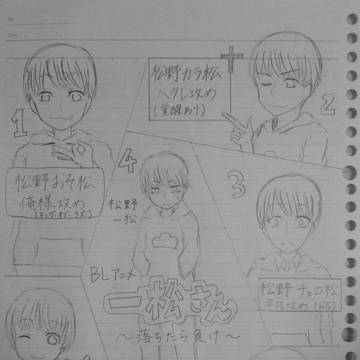 1
松野おそ松
俺様攻め
(キング・オブ・クズ)
松野カラ松
ヘタレ攻め
(覚醒あり)
2
4
松野
一松
3
松野 チョロ松
平凡攻め (FS)
BLアニメ
一松さん
〜落ちたら負け〜